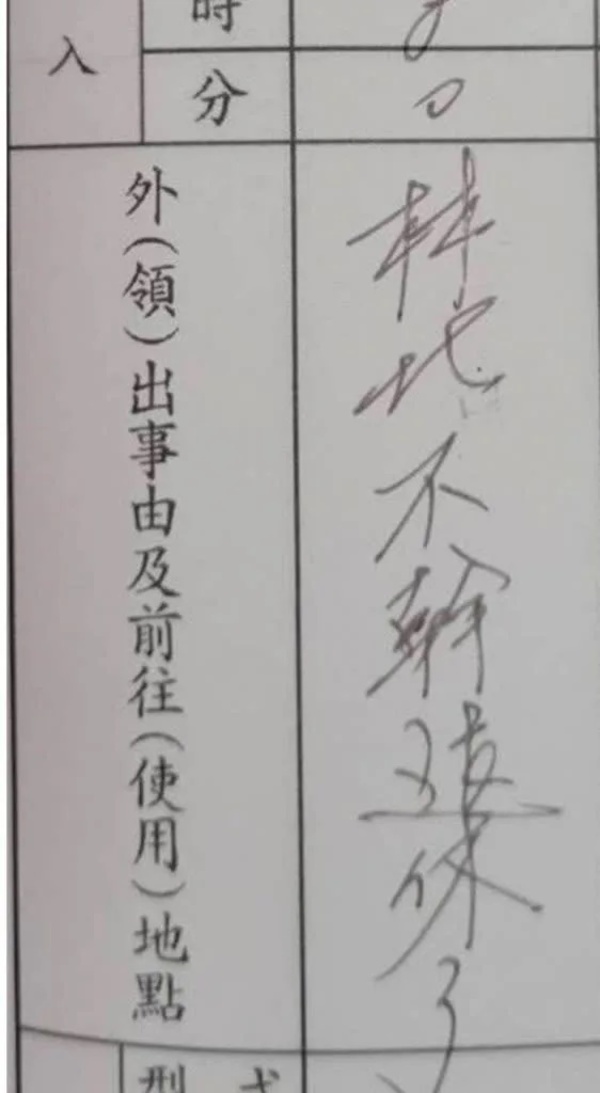 入
時
分
00
外(領)出事由及前往(使用)地點
林北不幹退休了
型式